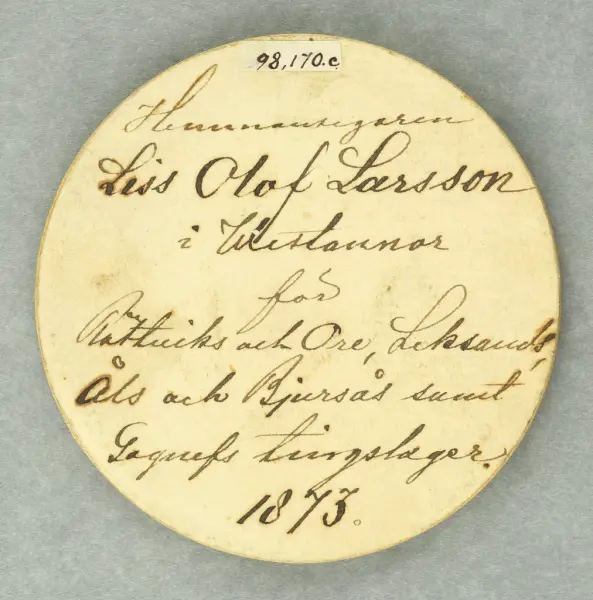 98,170.c
Hemmansegaren
Liss Olof Larsson
i Westannor
för
Rättviks och Ore, Leksands,
Åls och Bjursås samt
Gagnefs tingslager.
1873.